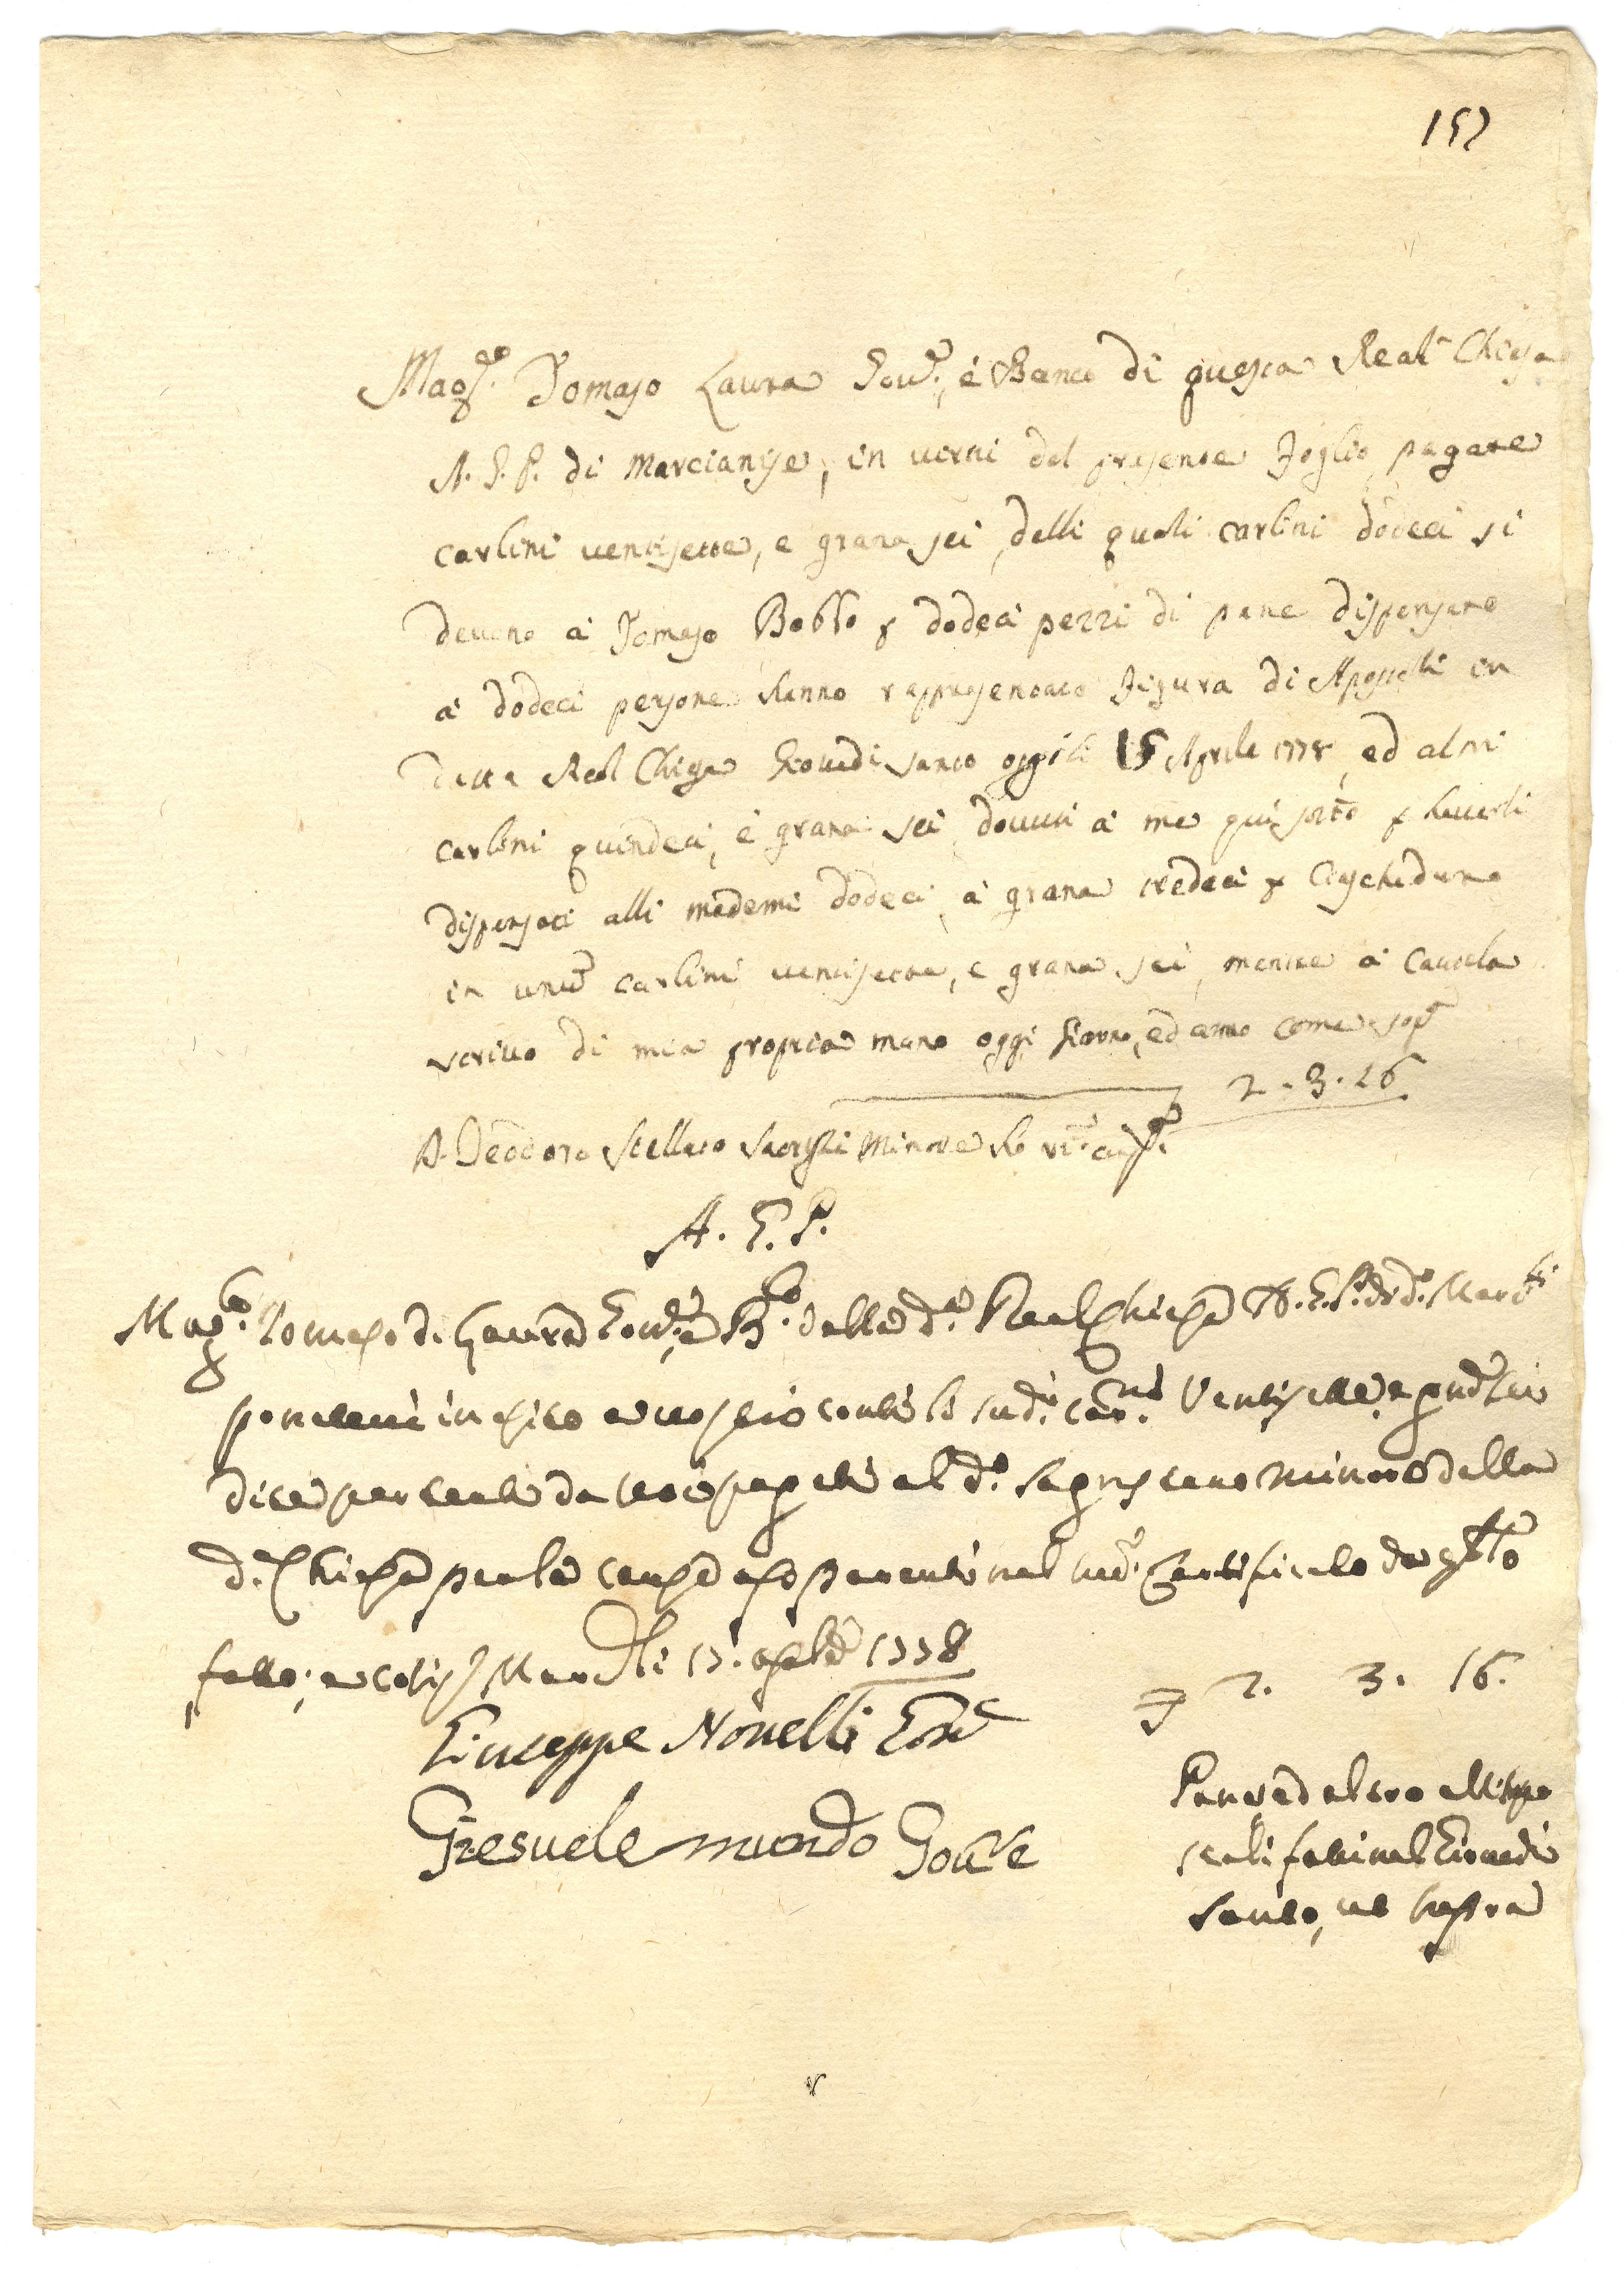 157
Mag.co Tomaso Laura Gov.e, e Banco di questa Real Chiesa
A. G. P. di Marcianise, in virtù del presente foglio pagate
carlini ventisette, e grana sei, delli quali carlini dodeci si
devono à Tomaso Bobbo p dodeci pezzi di pane dispensate
à dodeci persone hanno rappresentato figura di Apostoli in
detta Real Chiesa Giovedi santo oggi li 15 Aprile 1778, ed altri
carlini quindeci, e grana sei dovuti à me qui sotto p haverli
dispensati alli medemi dodeci à grana tredeci p Ciascheduno
in unum carlini ventisette, e grana sei, mentre à cautela
scritto di mia propria mano oggi giorno, ed anno come sop.a
2 . 3 . 16
D. Teodoro Stellato Sacrist. Minore ho
A. G. P.
Mag.co Tomaso d. Laura Gov.e, e B.co della d.a Real Chiesa A. G. P. di d.o Marc.si
ponetevi in esito a vostro conti li sud.i car.ni Ventisette, e grana sei
da voi pagati al d.o Sagrestano minore della
d.a Chiesa per la causa nel sud.o Certificato da esso
fatto; Marc.si li 17. aple 1778
2. 3. 16.
Giuseppe Novelli Gov.e
Giesuele mundo Gov.re
Pane ed altro alli Apo
stoli fatti nel Giovedi
Santo, ut supra